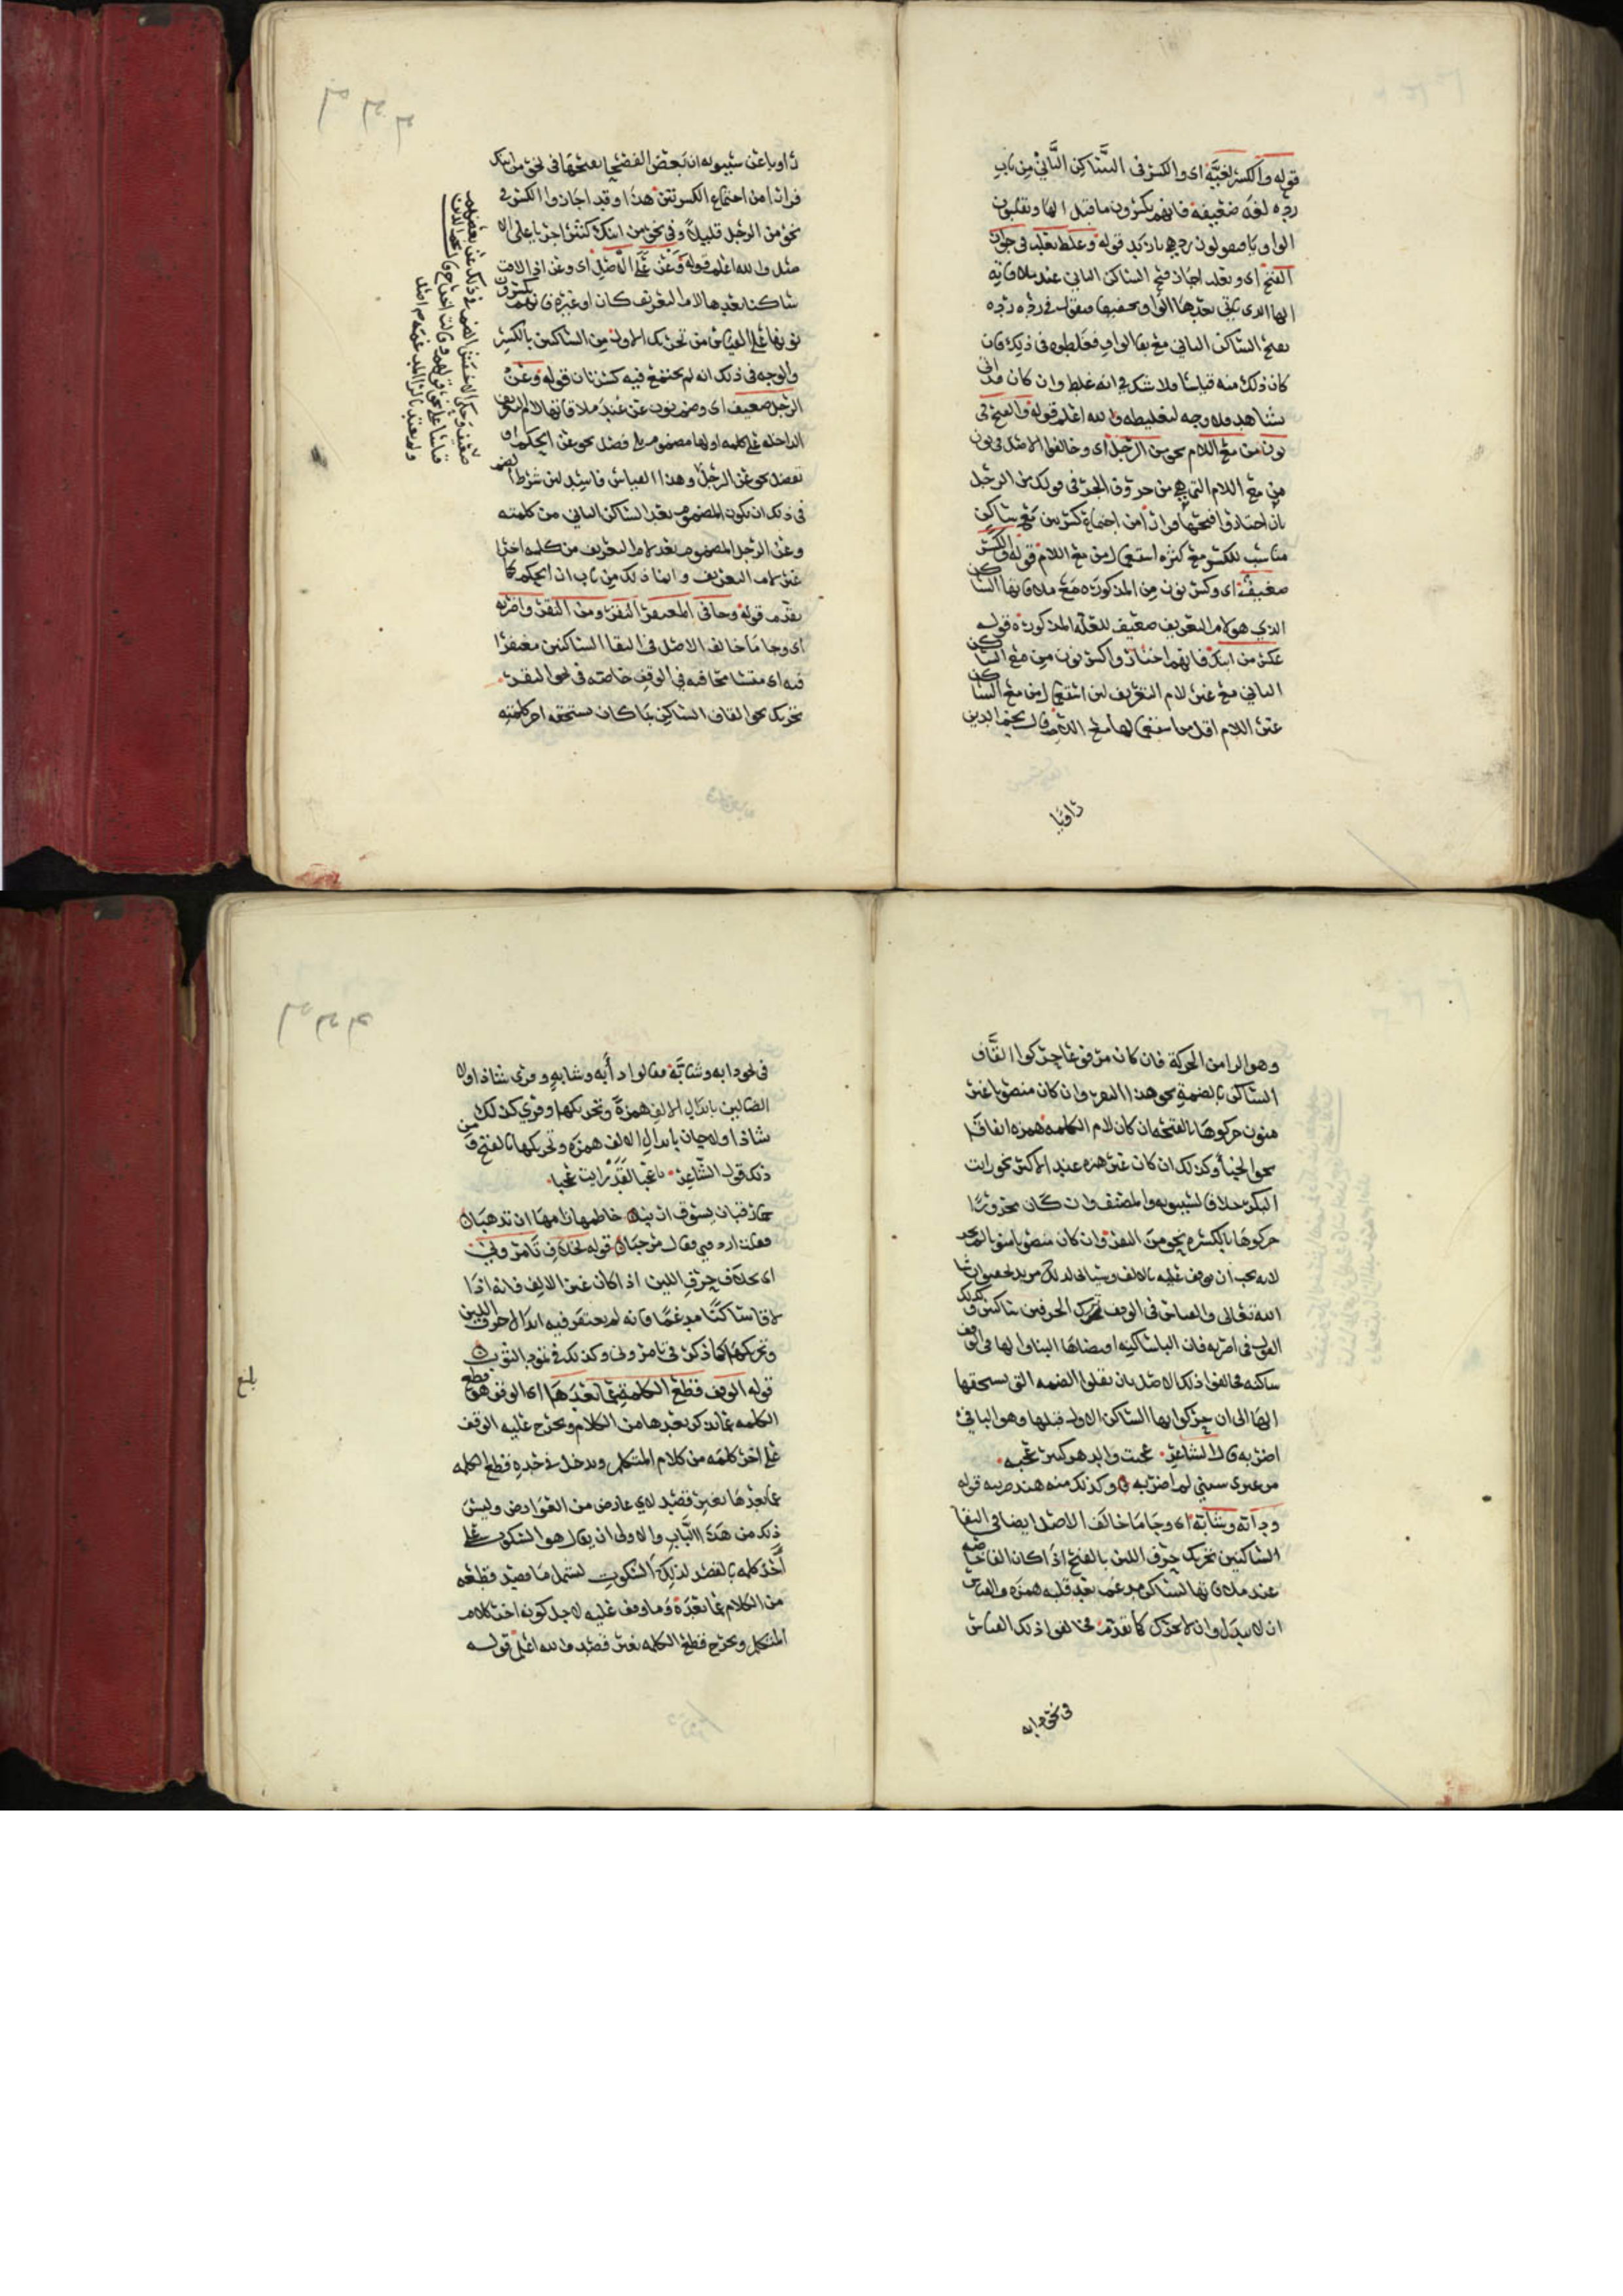 قوله والكسر لغيَّة اى والكسر فى الساكن الثاني من باب
رده لغة ضعيفة فانهم يكسرون ما قبل الها ويقلبون
الواو يا فيقولون ردهي يا زيد قوله وغلط ثعلب فى جواز
الفتح اى وثعلب اجاز فتح الساكن الثاني عند ملاقاته
الها الذي ياتي بعدها الواو فيقول في رده رده
بفتح الساكن الثاني مع بقا الواو فغلطوه فى ذلك فان
كان ذلك منه قياسا ولا شك في انه غلط وان كان قد اتى
بشاهد فلا وجه لتغليطه والله اعلم قوله والفتح في
نون من مع اللام نحو من الرجل اى وخالفوا الاصل في نون
من مع اللام التي هي من حروف الجر فى قولك من الرجل
بان اختاروا فتحها فرارا من اجتماع كسرتين مع ساكن
مناسب للكسر مع كثرة استعمال من مع اللام قوله والكسر
ضعيف اى وكسر نون من المذكورة مع ملاقاتها الساكن
الذي هو لام التعريف ضعيف للعلة المذكورة قوله
عكس من ابنك فانهم اختاروا كسر نون من مع الساكن
الثاني مع غير لام التعريف لان استعمال من مع الساكن
غير اللام اقل من استعمالها مع اللام قال نجم الدين
راويا
راويا عن سيبويه ان بعض الفصحا يفتحها فى نحو من ابنك
فرارا من اجتماع الكسرتين هذا وقد اجازوا الكسر في
نحو من الرجل قليلا وفي نحو من ابنك كثيرا جريا على الا
صل والله اعلم قوله وعن على الاصل اى وعن اذا لاقت
ساكنا بعدها لام التعريف كان او غيره فانهم يكسرون
نونها على القياس من تحريك الاول من الساكنين بالكسر
والوجه فى ذلك انه لم يجتمع فيه كسرتان قوله وعن
الرجل ضعيف اى وضم نون عن عند ملاقاتها لام التعريف
الداخلة على كلمة اولها مضموم بلا فصل نحو عن الحكم او
بفصل نحو عن الرجل وهذا القياس فاسد لان شرط الضم
فى ذلك ان يكون المضموم بعد الساكن الثاني من كلمته
وعن الرجل المضموم بعد لام التعريف من كلمة اخرى
غير لام التعريف وانما ذلك من باب ان الحكم كما
تقدم قوله وجا فى المغتفر النقر ومن النقر واضربه
اى وجا ما خالف الاصل فى التقا الساكنين مغتفرا
فيه اى متسامحا فيه في الوقف خاصة فى نحو النقر
تحريك نحو القاف الساكن بما كان يستحقه اخر كلمته
وهو الرا من الحركة فان كان مرفوعا حركوا القاف
الساكن بالضمة نحو هذا النقر وان كان منصوبا غير
منون حركوها بالفتحة ان كان لام الكلمة همزة اتفاقا
نحو الخبأ وكذلك ان كان غير همزة عند الاكثر نحو رايت
البكر خلافا لسيبويه والمصنف وان كان مجرورا
حركوها بالكسرة نحو من النقر وان كان منصوبا
لانه يجب ان يوقف عليه بالالف وسياتي لذلك مزيد تحقيق ان شا
الله تعالى والقياس فى الوقف ترك الحرفين ساكنين وكذلك
القول فى اضربه فان البا ساكنة
ساكنة فخالفوا ذلك الاصل بان نقلوا الضمة التي يستحقها
الها الى ان حركوا بها الساكن الاول قبلها وهو البا في
اضربه قال الشاعر عجبت والدهر كثير عجبه
من عنزي سبني لم اضربه وكذلك منه هند ضربته قوله
ودابة وشابة اى وجا ما خالف الاصل ايضا فى التقا
الساكنين تحريك حرف اللين بالفتح اذا كان الفا خاصة
عند ملاقاتها الساكن مدغما بعد قلبه همزة والقياس
ان لا يبدل وان لا يحرك كما تقدم فخالفوا ذلك القياس
فى نحو دابه
فى نحو دابه وشابة فقالوا دأبه وشأبه وقري شاذا ولا
الضالين بابدال الالف همزة وتحريكها وقري كذلك
شاذا ولا جان بابدال الالف همزة وتحريكها بالفتح ومن
ذلك قول الشاعر يا عجبا لقد رايت عجبا
حمار قبان يسوق ارنبا خاطمها زامها ان تذهبا
فقلت اردفني فقال مرحبا قوله بخلاف تامروني
اى بخلاف حرف اللين اذا كان غير الالف فانه اذا
لاقا ساكنا مدغما فانه لم يغتفر فيه ابدال حرف اللين
وتحريكها كما ذكر فى تامروني وكذلك في تمود الثوب
قوله الوقف قطع الكلمة عما بعدها اى الوقف هو قطع
الكلمه عما يذكر بعدها من الكلام ويخرج عليه الوقف
على اخر كلمة من كلام المتكلم ويدخل في حده قطع الكلمه
عما بعدها بغير قصد لاي عارض من العوارض وليس
ذلك من هذا الباب والاولى ان يقال هو السكوت على
آخر كلمه بالقصد لذلك السكوت ليشمل ما قصد قطعه
من الكلام عما بعده وما وقف عليه لاجل كونه اخر كلام
المتكلم ويخرج قطع الكلمه بغير قصد والله اعلم قوله
بلغ